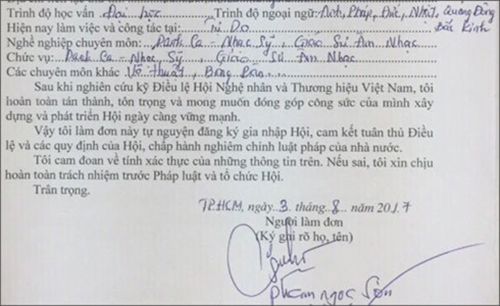 Trình độ học vấn Đại học Trình độ ngoại ngữ: Anh, Pháp, Đức, Nhật, Quảng Đông
Hiện nay làm việc và công tác tại: Tự Do Bắc Kinh
Nghề nghiệp chuyên môn: Danh Ca - Nhạc Sỹ, Giáo Sư Âm Nhạc
Chức vụ: Danh Ca - Nhạc Sỹ, Giáo Sư Âm Nhạc
Các chuyên môn khác Võ thuật, Bóng Bàn...
Sau khi nghiên cứu kỹ Điều lệ Hội Nghệ nhân và Thương hiệu Việt Nam, tôi
hoàn toàn tán thành, tôn trọng và mong muốn đóng góp công sức của mình xây
dựng và phát triển Hội ngày càng vững mạnh.
Vậy tôi làm đơn này tự nguyện đăng ký gia nhập Hội, cam kết tuân thủ Điều
lệ và các quy định của Hội, chấp hành nghiêm chỉnh luật pháp của nhà nước.
Tôi cam đoan về tính xác thực của những thông tin trên. Nếu sai, tôi xin chịu
hoàn toàn trách nhiệm trước Pháp luật và tổ chức Hội.
Trân trọng.
TP.HCM, ngày 3 tháng 8 năm 2017
Người làm đơn
(Ký ghi rõ họ, tên)
Phạm Ngọc Sơn